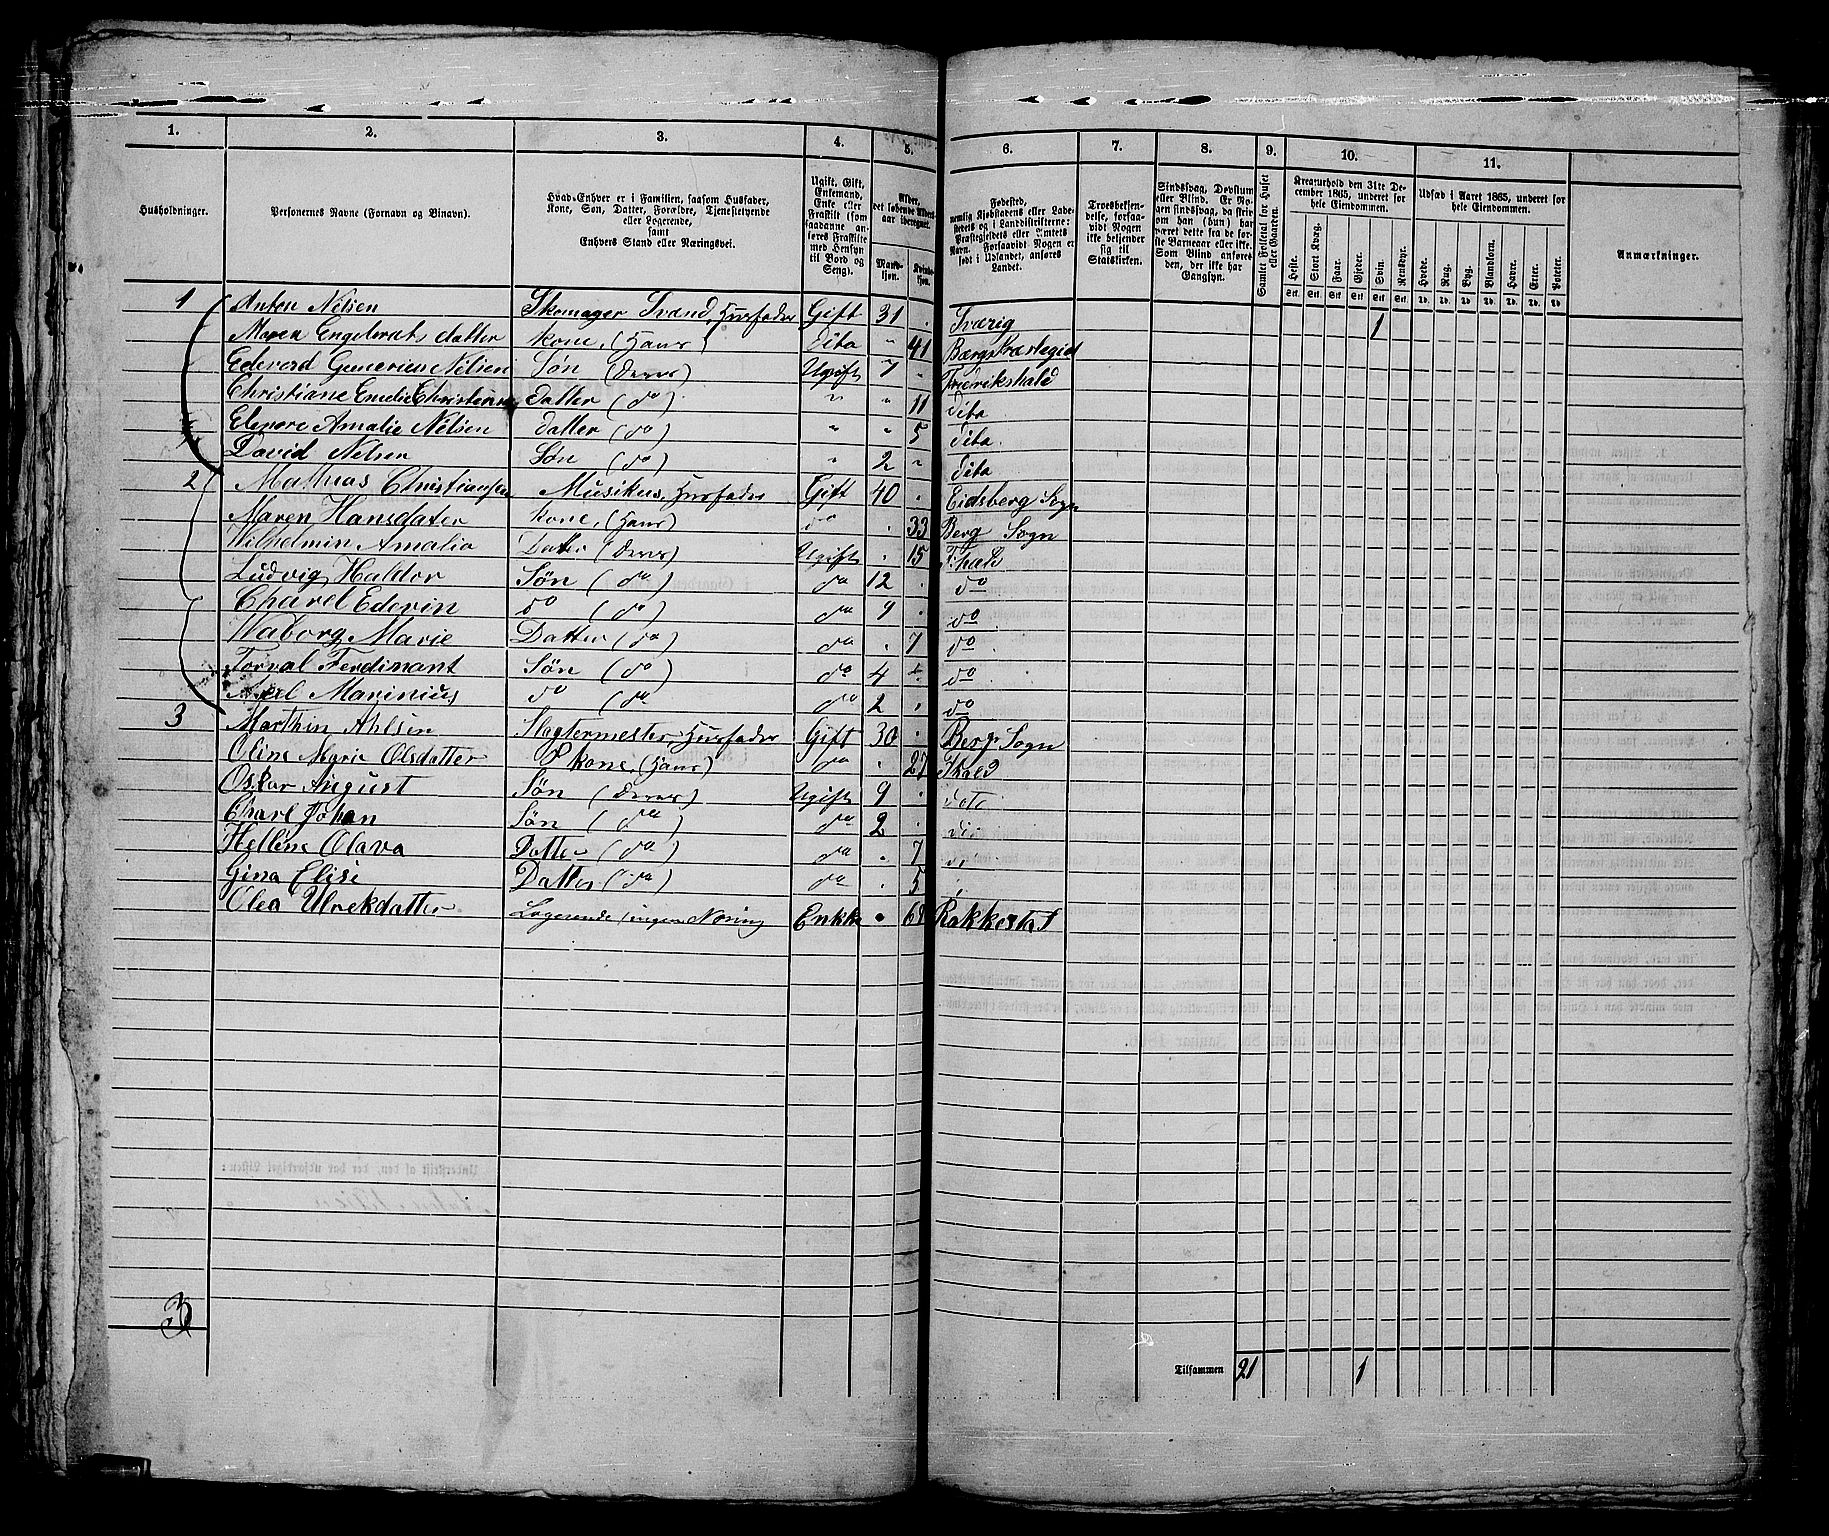 1. 2. 3. 4. 5. 6. 7. 8. 9. 10. 11.
Husholdninger.
Personernes Navne (Fornavn og Binavn).
Hvad Enhver er i Familien, saasom Husfader,
Kone, Søn, Datter, Forældre, Tjenestetyende
eller Logerende,
samt
Enhvers Stand eller Næringsvei.
Ugift, Gift,
Enkemand,
Enke eller
Fraskilt (som
saadanne an-
føres Fraskilte
med Hensyn
til Bord og
Seng).
Alder,
det løbende Alders-
aar iberegnet.
Mand-
kjøn.
Kvinde-
kjøn.
Fødested,
nemlig Kjøbstadens eller Lade-
stedets og i Landdistrikterne:
Præstegjeldets eller Amtets
Navn. Forsaavidt Nogen er
født i Udlandet, anføres
Landet.
Troesbekjen-
delse, forsaa-
vidt Nogen
ikke bekjender
sig til
Statskirken.
Sindssvag, Døvstum
eller Blind. Er No-
gen sindssvag, da skriv
om han (hun) har
været dette fra de før-
ste Barneaar eller ikke.
Som Blind anføres
den, der ikke har
Gangsyn.
Samlet Folketal for Huset
eller Gaarden.
Kreaturhold den 31te De-
cember 1865, underet for
hele Eiendommen.
Heste. Stort Kvæg. Faar. Gjeder. Svin. Rensdyr.
Stk. Stk. Stk. Stk. Stk. Stk.
Udsæd i Aaret 1865, underet for
hele Eiendommen.
Hvede. Rug. Byg. Blandkorn. Havre. Erter. Poteter.
Td. Td. Td. Td. Td. Td. Td.
Anmærkninger.
1 Anton Nelsen Skomager Svend, Husfader Gift 31 . Sværig 1
Maren Engebrets datter Kone, (Hans) dito " 41 Bærgs Præstegield
Edevard Gunerius Nelsen Søn (Deres) Ugift 7 " Fredrikshald
Christiane Emelie Christensen datter (do) " " 11 dito
Elenore Amalie Nelsen datter (do) " " 5 dito
David Nelsen Søn (do) " 2 " dito
2 Mathias Christiansen Musikus, Husfader Gift 40 . Eidsberg Sogn
Maren Hansdater Kone, (Hans) do . 33 Berg Sogn
Wilhelmin Amalia Datter (Deres) Ugift . 15 F.hald
Ludvig Haldor Søn (do) do 12 . do
Charel Edevin do (do) do 9 . do
Waborg Marie Datter (do) do . 7 do
Torval Ferdinant Søn (do) do 4 . do
Axel Marinius do (do) do 2 . do
3 Marthin Ahlsen Slagtermester, Husfader Gift 30 . Berg Sogn
Oline Marie Olsdatter Kone, (Hans) do . 27 Fhald
Oskar August Søn (Deres) Ugift 9 . dito
Charl Johan Søn (do) do 2 .
Hellene Olava Datter (do) do . 7
Gina Elise Datter (do) do . 5
Olea Ulrekdatter Logerende, ingen Næring Enkke . 68 Rakkestat
3
Tilsammen 21 1